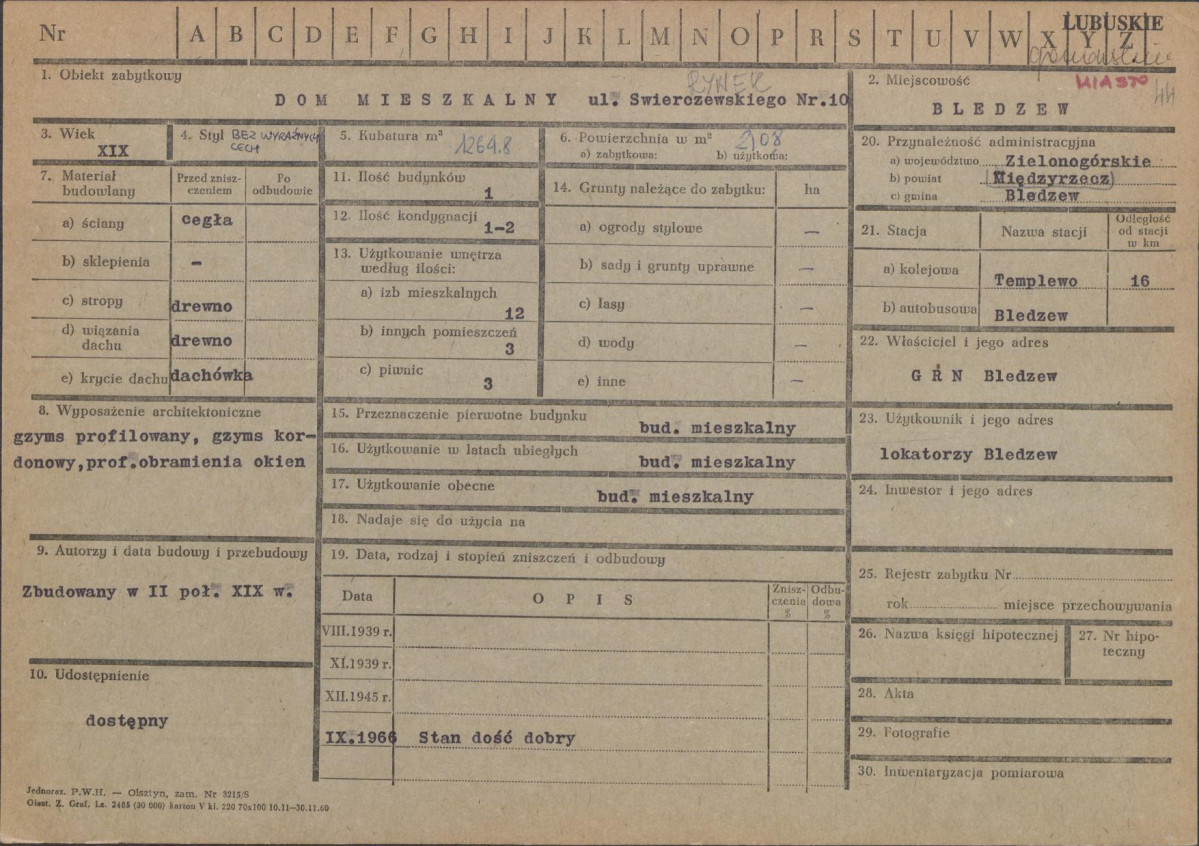 Nr A B C D E F G H I J K L M N O P R S T U V W X Y Z
LUBUSKIE
1. Obiekt zabytkowy
RYNEK
DOM MIESZKALNY ul. Swierczewskiego Nr.10
2. Miejscowość
MIASTO
44
BLEDZEW
3. Wiek
XIX
4. Styl BEZ WYRAŹNYCH
CECH
5. Kubatura m³
1264.8
6. Powierzchnia w m²
208
a) zabytkowa: b) użytkowa:
20. Przynależność administracyjna
a) województwo Zielonogórskie
b) powiat (Międzyrzecz)
c) gmina Bledzew
7. Materiał
budowlany
Przed znisz-
czeniem
Po
odbudowie
a) ściany cegła
b) sklepienia –
c) stropy drewno
d) wiązania
dachu drewno
e) krycie dachu dachówka
11. Ilość budynków
1
12. Ilość kondygnacji
1-2
13. Użytkowanie wnętrza
według ilości:
a) izb mieszkalnych
12
b) innych pomieszczeń
3
c) piwnic
3
14. Grunty należące do zabytku: ha
a) ogrody stylowe —
b) sady i grunty uprawne —
c) lasy —
d) wody —
e) inne —
21. Stacja Nazwa stacji
Odległość
od stacji
w km
a) kolejowa Templewo 16
b) autobusowa Bledzew
22. Właściciel i jego adres
G R N Bledzew
8. Wyposażenie architektoniczne
gzyms profilowany, gzyms kor-
donowy,prof.obramienia okien
15. Przeznaczenie pierwotne budynku
bud. mieszkalny
16. Użytkowanie w latach ubiegłych
bud. mieszkalny
17. Użytkowanie obecne
bud. mieszkalny
18. Nadaje się do użycia na
23. Użytkownik i jego adres
lokatorzy Bledzew
24. Inwestor i jego adres
9. Autorzy i data budowy i przebudowy
Zbudowany w II poł. XIX w.
19. Data, rodzaj i stopień zniszczeń i odbudowy
Data O P I S
Znisz-
czenie
%
Odbu-
dowa
%
VIII.1939 r.
XI.1939 r.
XII.1945 r.
IX.1966 Stan dość dobry
25. Rejestr zabytku Nr
rok miejsce przechowywania
26. Nazwa księgi hipotecznej
27. Nr hipo-
teczny
28. Akta
29. Fotografie
30. Inwentaryzacja pomiarowa
10. Udostępnienie
dostępny
Jednoraz. P.W.H. — Olsztyn, zam. Nr 3215/S
Olszt. Z. Graf. Lz. 2405 (30 000) karton V kl. 220 70x100 10.11—30.11.60